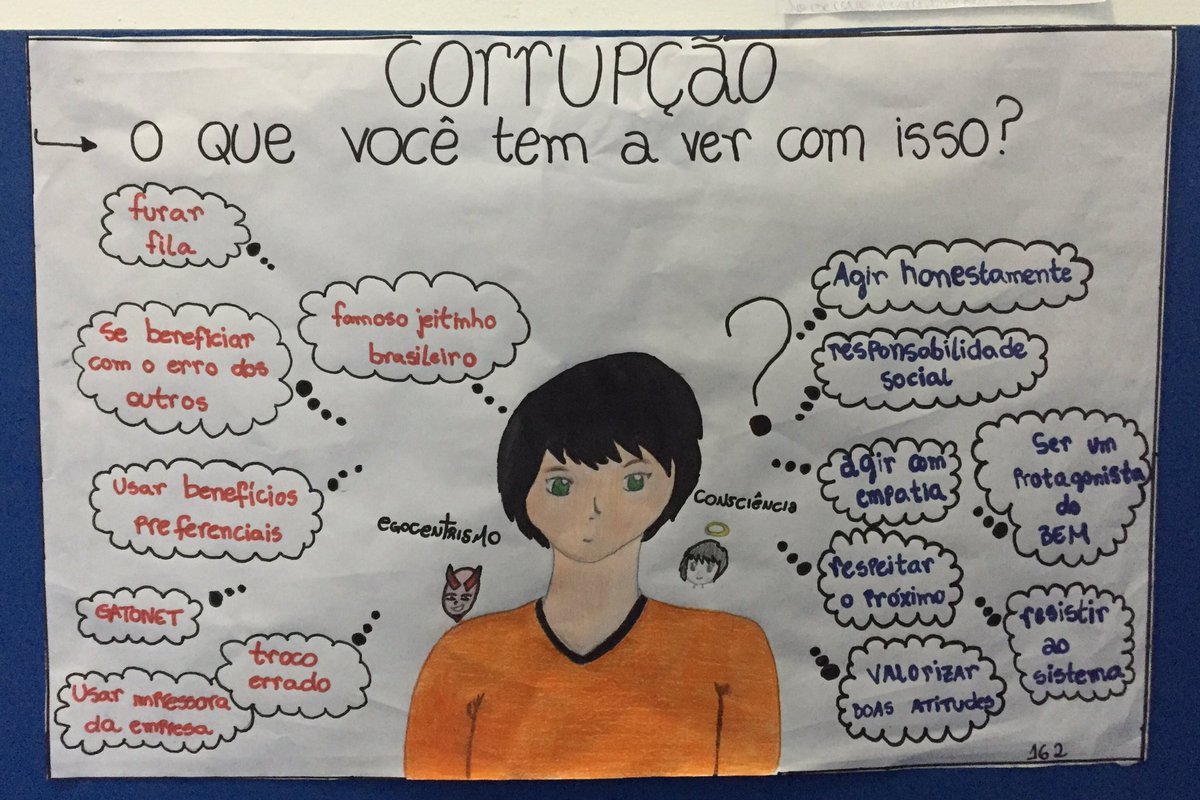 CORRUPÇÃO
O QUE VOCÊ tem a ver com isso?
furar
fila
famoso jeitinho
brasileiro
se beneficiar
com o erro dos
outros
Usar benefícios
preferenciais
EGOCENTRISMO
GATONET
troco
errado
Usar impressora
da empresa
Agir honestamente
responsabilidade
social
agir com
empatia
Ser um
Protagonista
do
BEM
CONSCIÊNCIA
respeitar
o Próximo
resistir
ao
sistema
VALORIZAR
BOAS ATITUDES
162